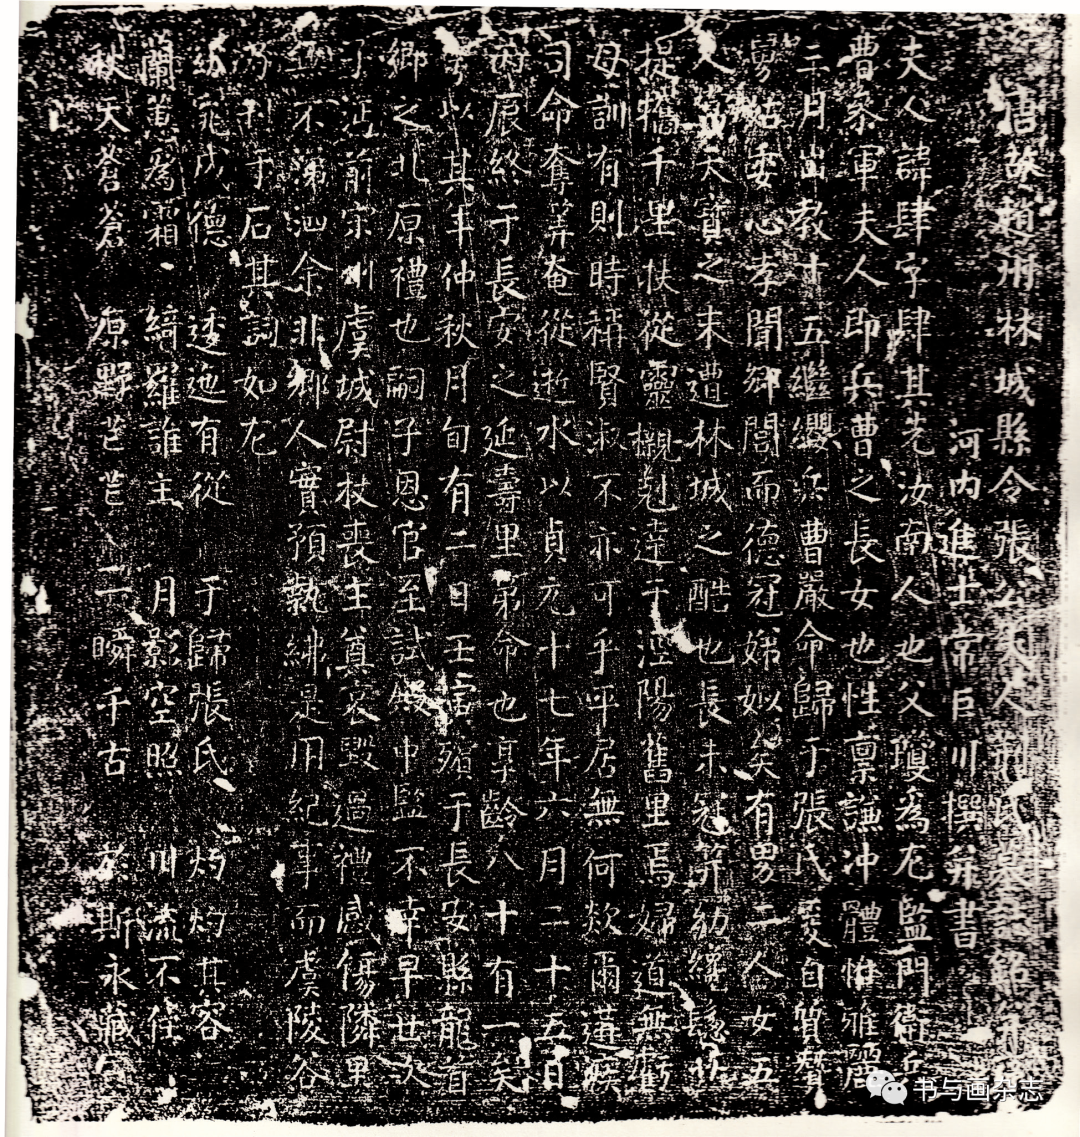 唐故趙州林城縣令張公夫人荊氏墓誌銘
河內進士常巨川撰并書
夫人諱肆字肆其先汝南人也父瓊為左監門衛兵
曹參軍夫人即兵曹之長女也性稟謙冲體惟雅麗
三月出教十五繼纓兵曹嚴命歸于張氏爰自質贄
舅姑委心孝聞鄉閭而德冠娣姒矣有男二人女五
人天寶之末遭林城之酷也長未冠笄幼纔
提攜千里扶從靈櫬剋達于涇陽舊里焉婦道無虧
母訓有則時稱賢淑不亦可乎呼居無何欻爾遘疾
司命奪筭奄從逝水以貞元十七年六月二十五日
終于長安之延壽里第命也享齡八十有一矣
以其年仲秋月旬有二日壬寅殯于長安縣龍首
鄉之北原禮也嗣子恩官至試殿中監不幸早世次
子前宋州虞城尉杖喪主奠哀毀過禮感傷隣里
無不涕泗余非鄉人實預執紼是用紀事而虞陵谷
刊于石其詞如左
窈窕成德 逶迤有從 于歸張氏 灼灼其容
蘭蕙為霜 綺羅誰主 月影空照 川流不住
秋天蒼蒼 原野芒芒 一瞬千古 於斯永藏
书与画杂志